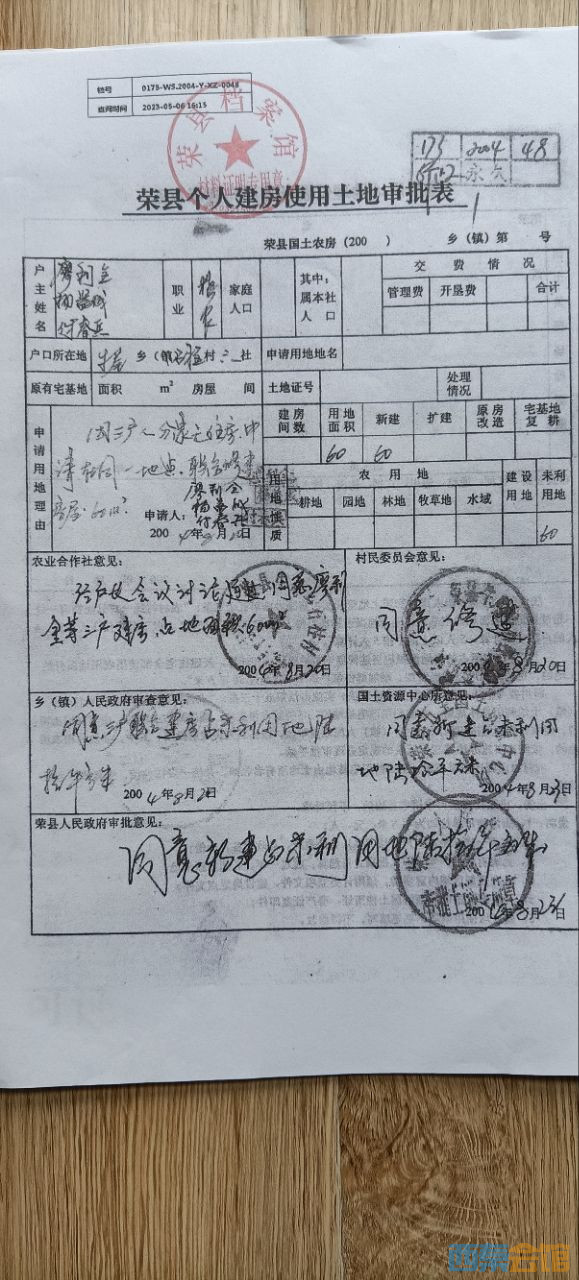 档号 0175-WS.2004-Y-XZ-0048
查阅时间 2023-05-06 16:15
荣县档案馆
材料证明专用章
173 2004 48
永久
荣县个人建房使用土地审批表
荣县国土农房(200 ) 乡(镇)第 号
户主姓名 廖利全
职业 务农 家庭人口 其中:属本社人口 交费情况
管理费 开垦费 合计
户口所在地 乡(镇) 村 社 申请用地地名
原有宅基地 面积 m² 房屋 间 土地证号 处理情况
申请用地理由
因三户人分家无住房,申
请在同一地点,联合修建
房屋:60m²
申请人:廖利全
2004年8月20日
建房间数 用地面积 新建 扩建 原房改造 宅基地复耕
60 60
用地性质 农用地 建设用地 未利用地
耕地 园地 林地 牧草地 水域
60
农业合作社意见:
经户代会议讨论通过,同意廖利
全等三户建房占地面积60m²
2004年8月20日
村民委员会意见:
同意修建
2004年8月20日
乡(镇)人民政府审查意见:
同意三户联合建房占未利用地陆
拾平方米 2004年8月2日
国土资源中心所意见:
同意新建占未利用
地陆拾平方米
2004年8月23日
荣县人民政府审批意见:
同意新建占未利用地陆拾平方米
审批工作专用章
2004年8月23日